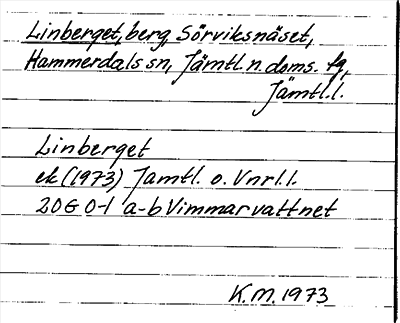 Linberget, berg, Sörviksnäset,
Hammerdals sn, Jämtl. n. doms. fg,
Jämtl. l.
Linberget
ek (1973) Jamtl. o. Vnrl. l.
20G 0-1 a-b Vimmarvattnet
K.M. 1973